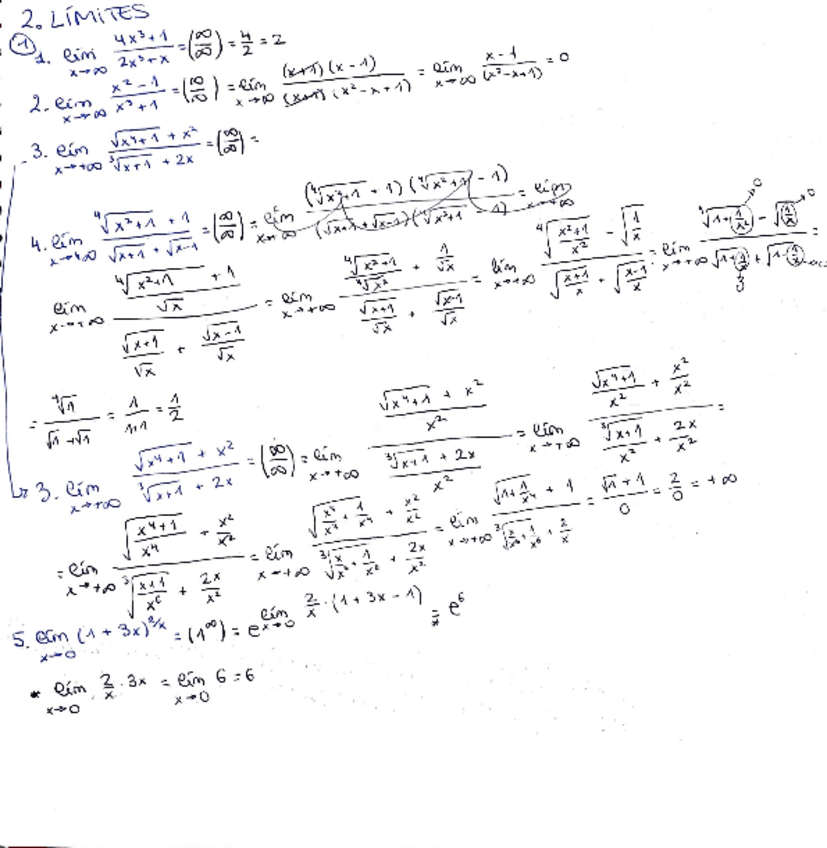 2. LÍMITES
① 1. lím x→∞ (4x³+1)/(2x³+x) = (∞/∞) = 4/2 = 2
2. lím x→∞ (x²-1)/(x³+1) = (∞/∞) = lím x→∞ (x+1)(x-1)/((x+1)(x²-x+1)) = lím x→∞ (x-1)/(x²-x+1) = 0
3. lím x→+∞ (√(x⁴+1) + x²)/(∛(x+1) + 2x) = (∞/∞) =
4. lím x→+∞ (∜(x²+1) + 1)/(√(x+1) + √(x-1)) = (∞/∞) = lím x→∞ ((∜(x²+1) + 1)(∜(x²+1) - 1))/((√(x+1) + √(x-1))(∜(x²+1) - 1)) = lím x→∞
lím x→+∞ ((∜(x²+1) + 1)/√x)/(√(x+1)/√x + √(x-1)/√x) = lím x→+∞ (∜(x²+1)/∜x² + 1/√x)/(√(x+1)/√x + √(x-1)/√x) = lím x→+∞ (∜((x²+1)/x²) - √(1/x))/(√((x+1)/x) + √((x-1)/x)) = lím x→+∞ (∜(1+1/x²) - √(1/x))/(√(1+1/x) + √(1-1/x)) =
= ∜1/(√1+√1) = 1/(1+1) = 1/2
3. lím x→+∞ (√(x⁴+1) + x²)/(∛(x+1) + 2x) = (∞/∞) = lím x→+∞ ((√(x⁴+1) + x²)/x²)/((∛(x+1) + 2x)/x²) = lím x→+∞ (√(x⁴+1)/x² + x²/x²)/(∛(x+1)/x² + 2x/x²) =
= lím x→+∞ (√((x⁴+1)/x⁴) + x²/x²)/(∛((x+1)/x⁶) + 2x/x²) = lím x→+∞ (√(x⁴/x⁴ + 1/x⁴) + x²/x²)/(∛(x/x⁶ + 1/x⁶) + 2x/x²) = lím x→+∞ (√(1+1/x⁴) + 1)/(∛(x/x⁶ + 1/x⁶) + 2/x) = (√1 + 1)/0 = 2/0 = +∞
5. lím x→0 (1 + 3x)^(2/x) = (1^∞) = e^(lím x→0 2/x · (1 + 3x - 1)) =* e⁶
* lím x→0 2/x · 3x = lím x→0 6 = 6